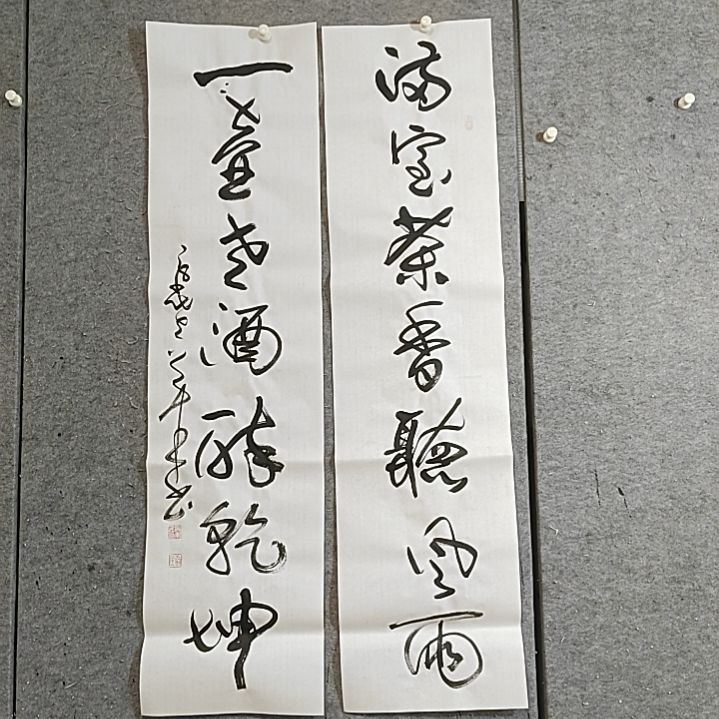 满室茶香聽风雨
一壶老酒醉乾坤